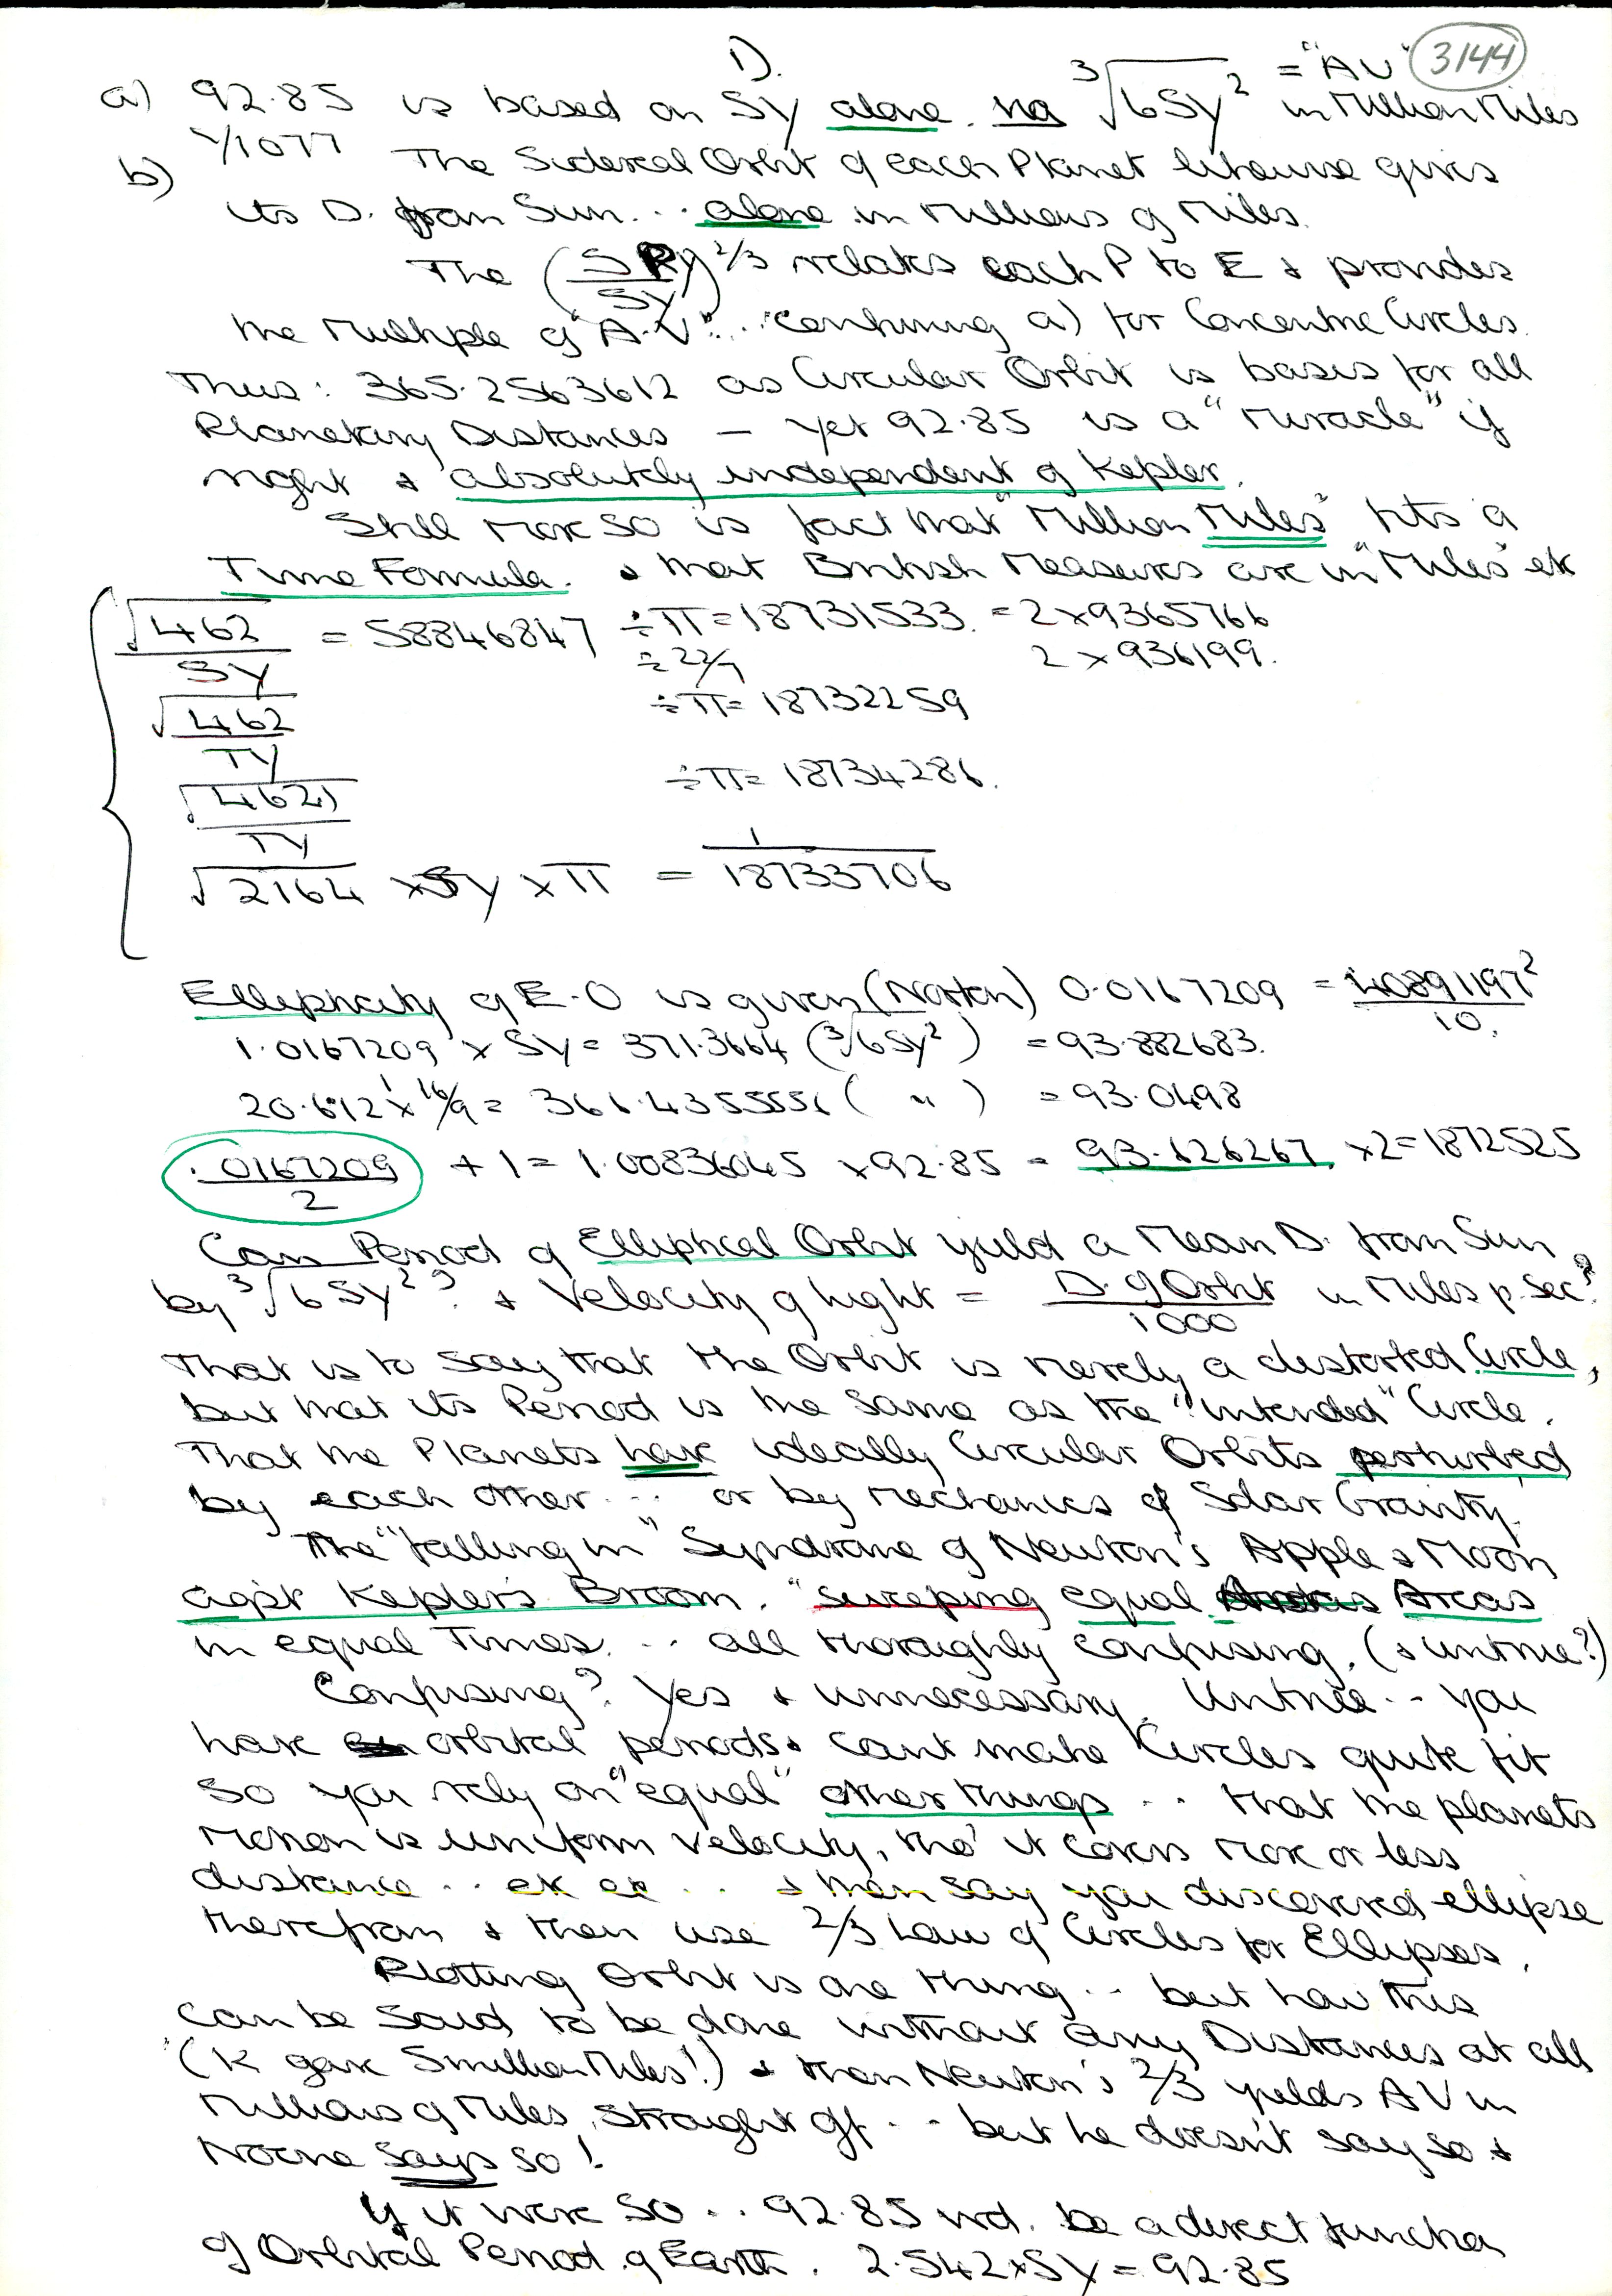 1).
3144
a) 92.85 is based on SY alone. via ³√6SY² = "AU" in Million Miles
b) Y/1077 The Sidereal Orbit of each Planet likewise gives
its D. from Sun... alone in Millions of Miles.
The (SPY/SY)^2/3 relates each P to E & provides
the Multiple of "A.U"... confirming a) for Concentric Circles.
Thus: 365.2563612 as Circular Orbit is basis for all
Planetary Distances — yet 92.85 is a "miracle" if
right & absolutely independent of Kepler.
Still more so is fact that "Million Miles" fits a
Time Formula. & that British Measures are in "Miles" etc
√462/SY = 58846847 ÷ π = 18731533. = 2 x 9365766
÷ 22/7 2 x 936199.
√462/TY ÷ π = 18732259
√462)/TY ÷ π = 18734286.
√2164 x SY x π = 1/18733706
Ellipticity of E.O is given (Norton) 0.0167209 = 40891197²/10.
1.0167209 x SY = 371.3664 (³/6SY²) = 93.882683.
20.612 x 16/9 = 366.4355556 ( " ) = 93.0498
.0167209/2 + 1 = 1.00836045 x 92.85 = 93.626267. x 2 = 1872525
Can Period of Elliptical Orbit yield a Mean D. from Sun
by ³√6SY²? & Velocity of light = D. of Orbit/1000 in Miles p. Sec?
That is to say that the Orbit is merely a distorted Circle,
but that its Period is the same as the "intended" Circle.
That the Planets have ideally Circular Orbits perturbed
by each other... or by mechanics of Solar Gravity.
The "falling in" Syndrome of Newton's Apple & Moon
agst Kepler's Broom. "sweeping equal Areas
in equal Times... all thoroughly confusing. (& untrue?)
Confusing? Yes & unnecessary. Untrue.. you
have orbital periods & cant make Circles quite fit
so you rely on "equal" other things.. that the planets
motion is uniform velocity, tho' it covers more or less
distance.. etc etc.. & then say you discovered ellipse
therefrom & then use 2/3 Law of Circles for Ellipses.
Plotting Orbit is one thing.. but how this
can be said to be done without any Distances at all
(K gave 5 million Miles!) & then Newton's 2/3 yields AU in
Millions of Miles, straight off.. but he doesn't say so &
Noone says so!
If it were so.. 92.85 wd. be a direct function
of Orbital Period of Earth. 2.542 x SY = 92.85